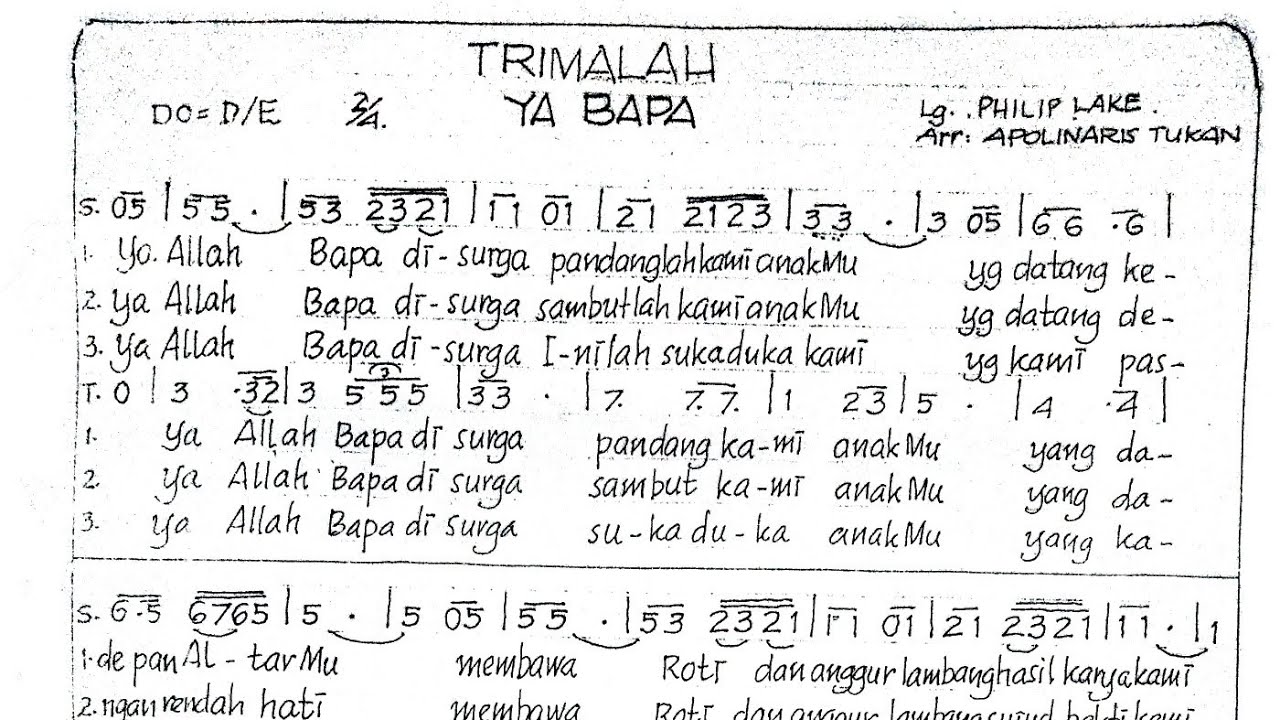 TRIMALAH
DO = D/E 2/4. YA BAPA Lg. : PHILIP LAKE.
Arr: APOLINARIS TUKAN
S. 05 | 55 . | 53 2321 | 11 01 | 21 2123 | 33 . | 3 05 | 66 .6 |
1. Ya Allah Bapa di-surga pandanglah kami anakMu yg datang ke-
2. ya Allah Bapa di-surga sambutlah kami anakMu yg datang de-
3. Ya Allah Bapa di-surga I-nilah sukaduka kami yg kami pas-
T. 0 | 3 .32 | 3 555 | 33 . | 7. 7.7. | 1 23 | 5 . | 4 .4 |
1. Ya Allah Bapa di surga pandang ka-mi anakMu yang da-
2. ya Allah Bapa di surga sambut ka-mi anakMu yang da-
3. ya Allah Bapa di surga su-ka du-ka anakMu yang ka-
S. 6.5 6765 | 5 . | 5 05 | 55 . | 53 2321 | 11 01 | 21 2321 | 11 . | 1
1. de pan Al-tarMu membawa Roti dan anggur lambang hasil karya kami
2. ngan rendah hati membawa Roti dan anggur lambang sujud bakti kami